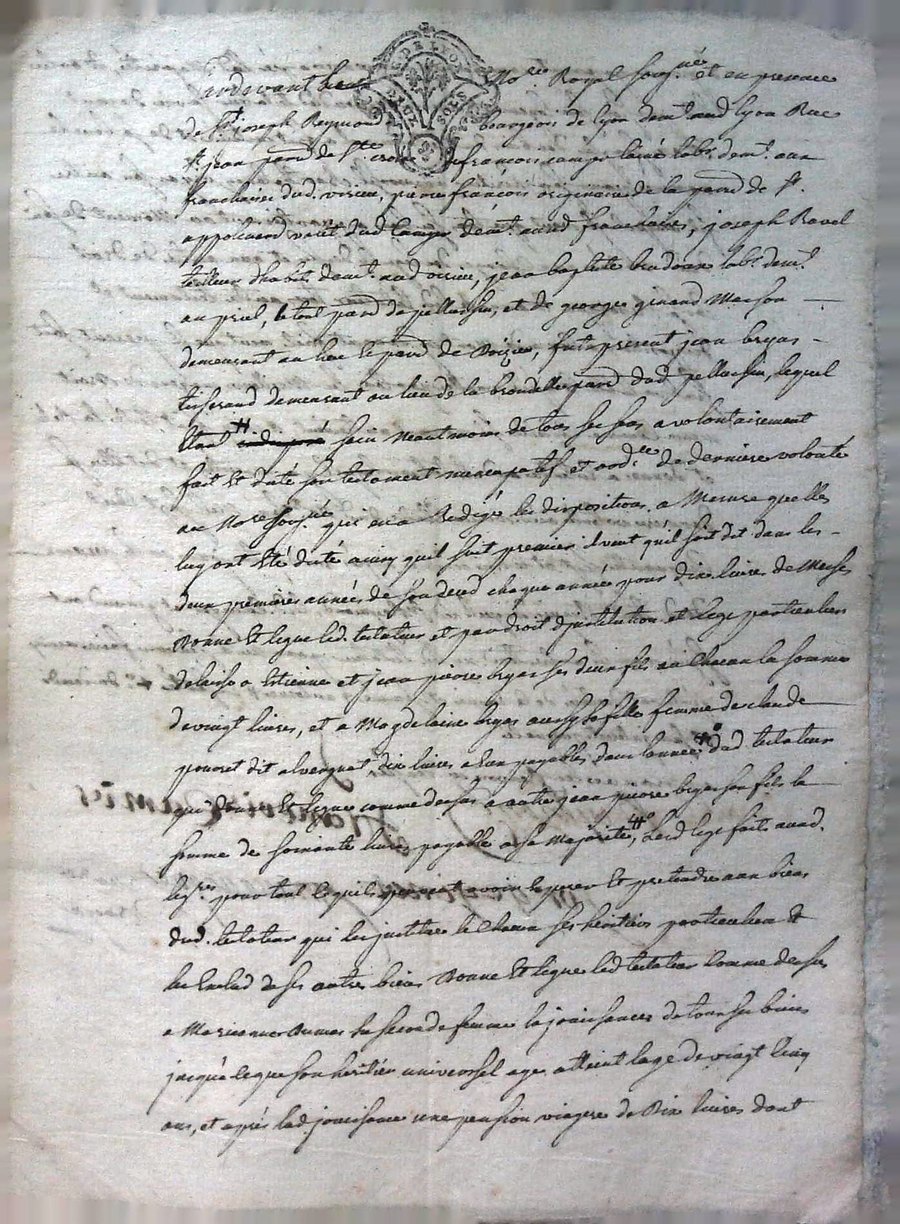 Pardevant le No.re Royal soug.né et en presence
de S.r joseph Reymond bourgeois de lyon dem.t aud lyon Rue
S.t jean parr.d de S.te croix françois camper lainé lab.r dem.t aux
franchises dud. virieu, pierre françois originaire de la parr.d de S.t
appolinard valet dud Camper dem.t aud franchises, joseph Ravel
tailleur d'habits dem.t aud virieu, jean baptiste lab.r dem.t
au priel, le tout parr.d de pellussin, et de george grand Masson
demeurant au lieu et parr.d de Roizieu, fut present jean bryas
tisserand demeurant au lieu de la brondelle parr.d dud pellussin, lequel
Etant # indisposé sain neantmoins de tous ses sens a volontairement
fait Et dicté son testament nuncupatif et ord.ce de derniere volonté
au No.re soug.né qui en a Redigé les dispositions a Mesure quelles
luy ont Eté dicté ainsy quil suit premier.t il veut qu'il soit dit dans les
deux premieres années de son deced chaque année pour dix livres de Messes
Donne Et legue led. testateur et par droit d'jnstitution et legs particuliers
delaisse a Estienne et jean pierre bryas ses deux fils a Chacun la somme
de vingt livres, et a Magdelaine bryas aussy sa fille femme de claude
pouret dit alvergnat dix livres a Eux payables dans lannée dud testateur
qui donne Et legue comme dessus a autre jean pierre bryas son fils la
somme de soixante livres payable a sa Majorité, Lesd legs faits aud.
leg.res pour tout ce quils peuvent avoir Esperer Et pretendre aux biens
dud. testateur qui les jnstitue Chacun ses héritiers particuliers &
les Exclud de ses autres biens Donne Et legue led testateur Comme dessus
a Marianne Dumas sa seconde femme la jouissances de tous ses biens
jusqu'à ce que son héritier universel aye atteint l'age de vingt Cinq
ans, et après lad. jouissance une pension viagere de Dix livres dont